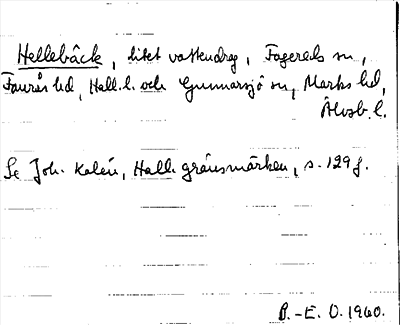 Hellebäck, litet vattendrag, Fagereds sn,
Faurås hd, Hall. l. och Gunnarsjö sn, Marks hd,
Älvsb. l.
Se Joh. Kalén, Halls gränsmärken, s. 129 f.
B.-E. O. 1960.